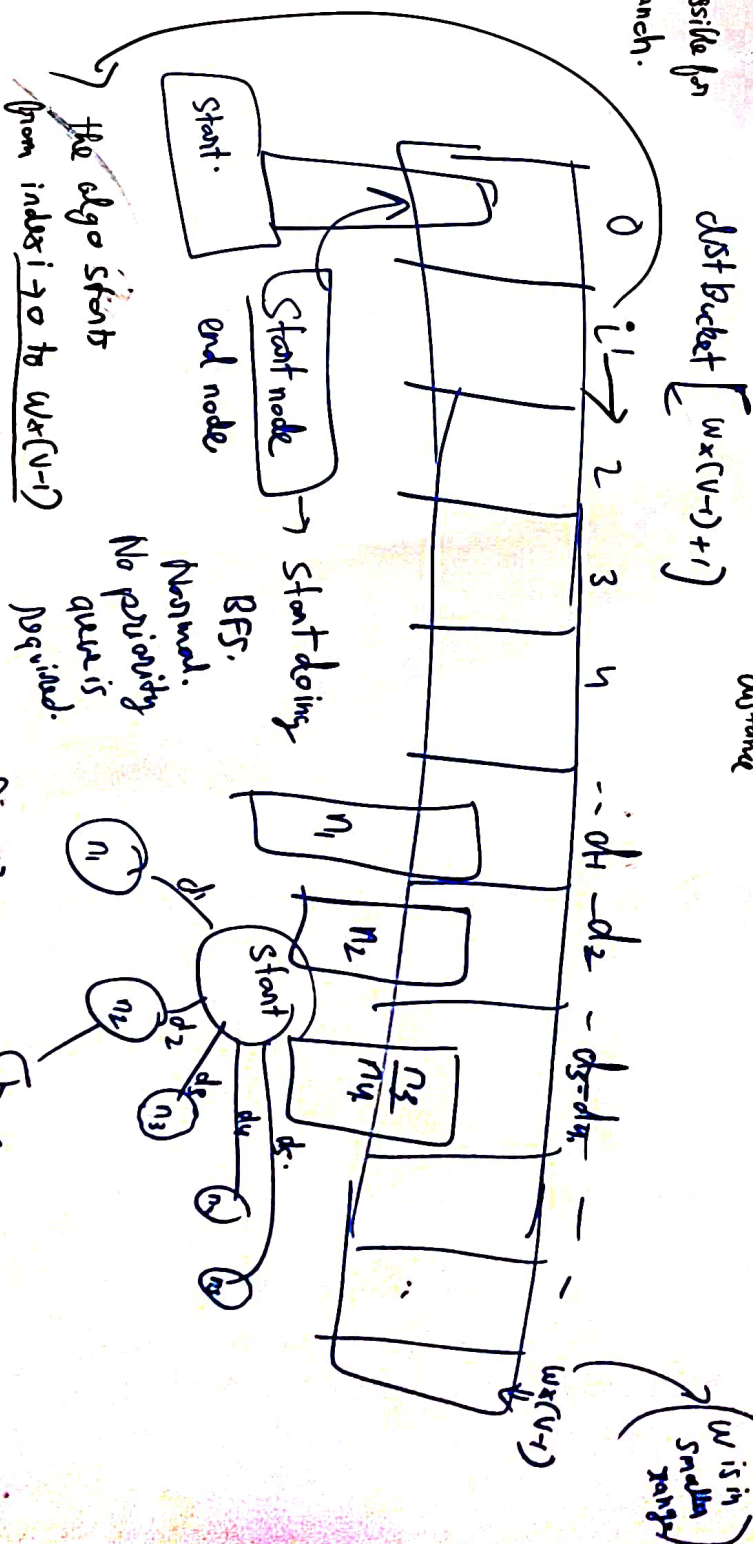 ssible for
anch.
dist Bucket [W×(V-1)+1]
0 i 2 3 4 -- d1 -d2 - d3=d4 — -
W×(V-1)
W is in
smaller
range
Start.
Start node
end node
→ start doing
BFS.
Normal.
No priority
queue is
required.
n1
n2
n3
n4
the algo starts
from index i → 0 to W×(V-1)
Start
d1
d2
d4
d5.
n1
n2
n3